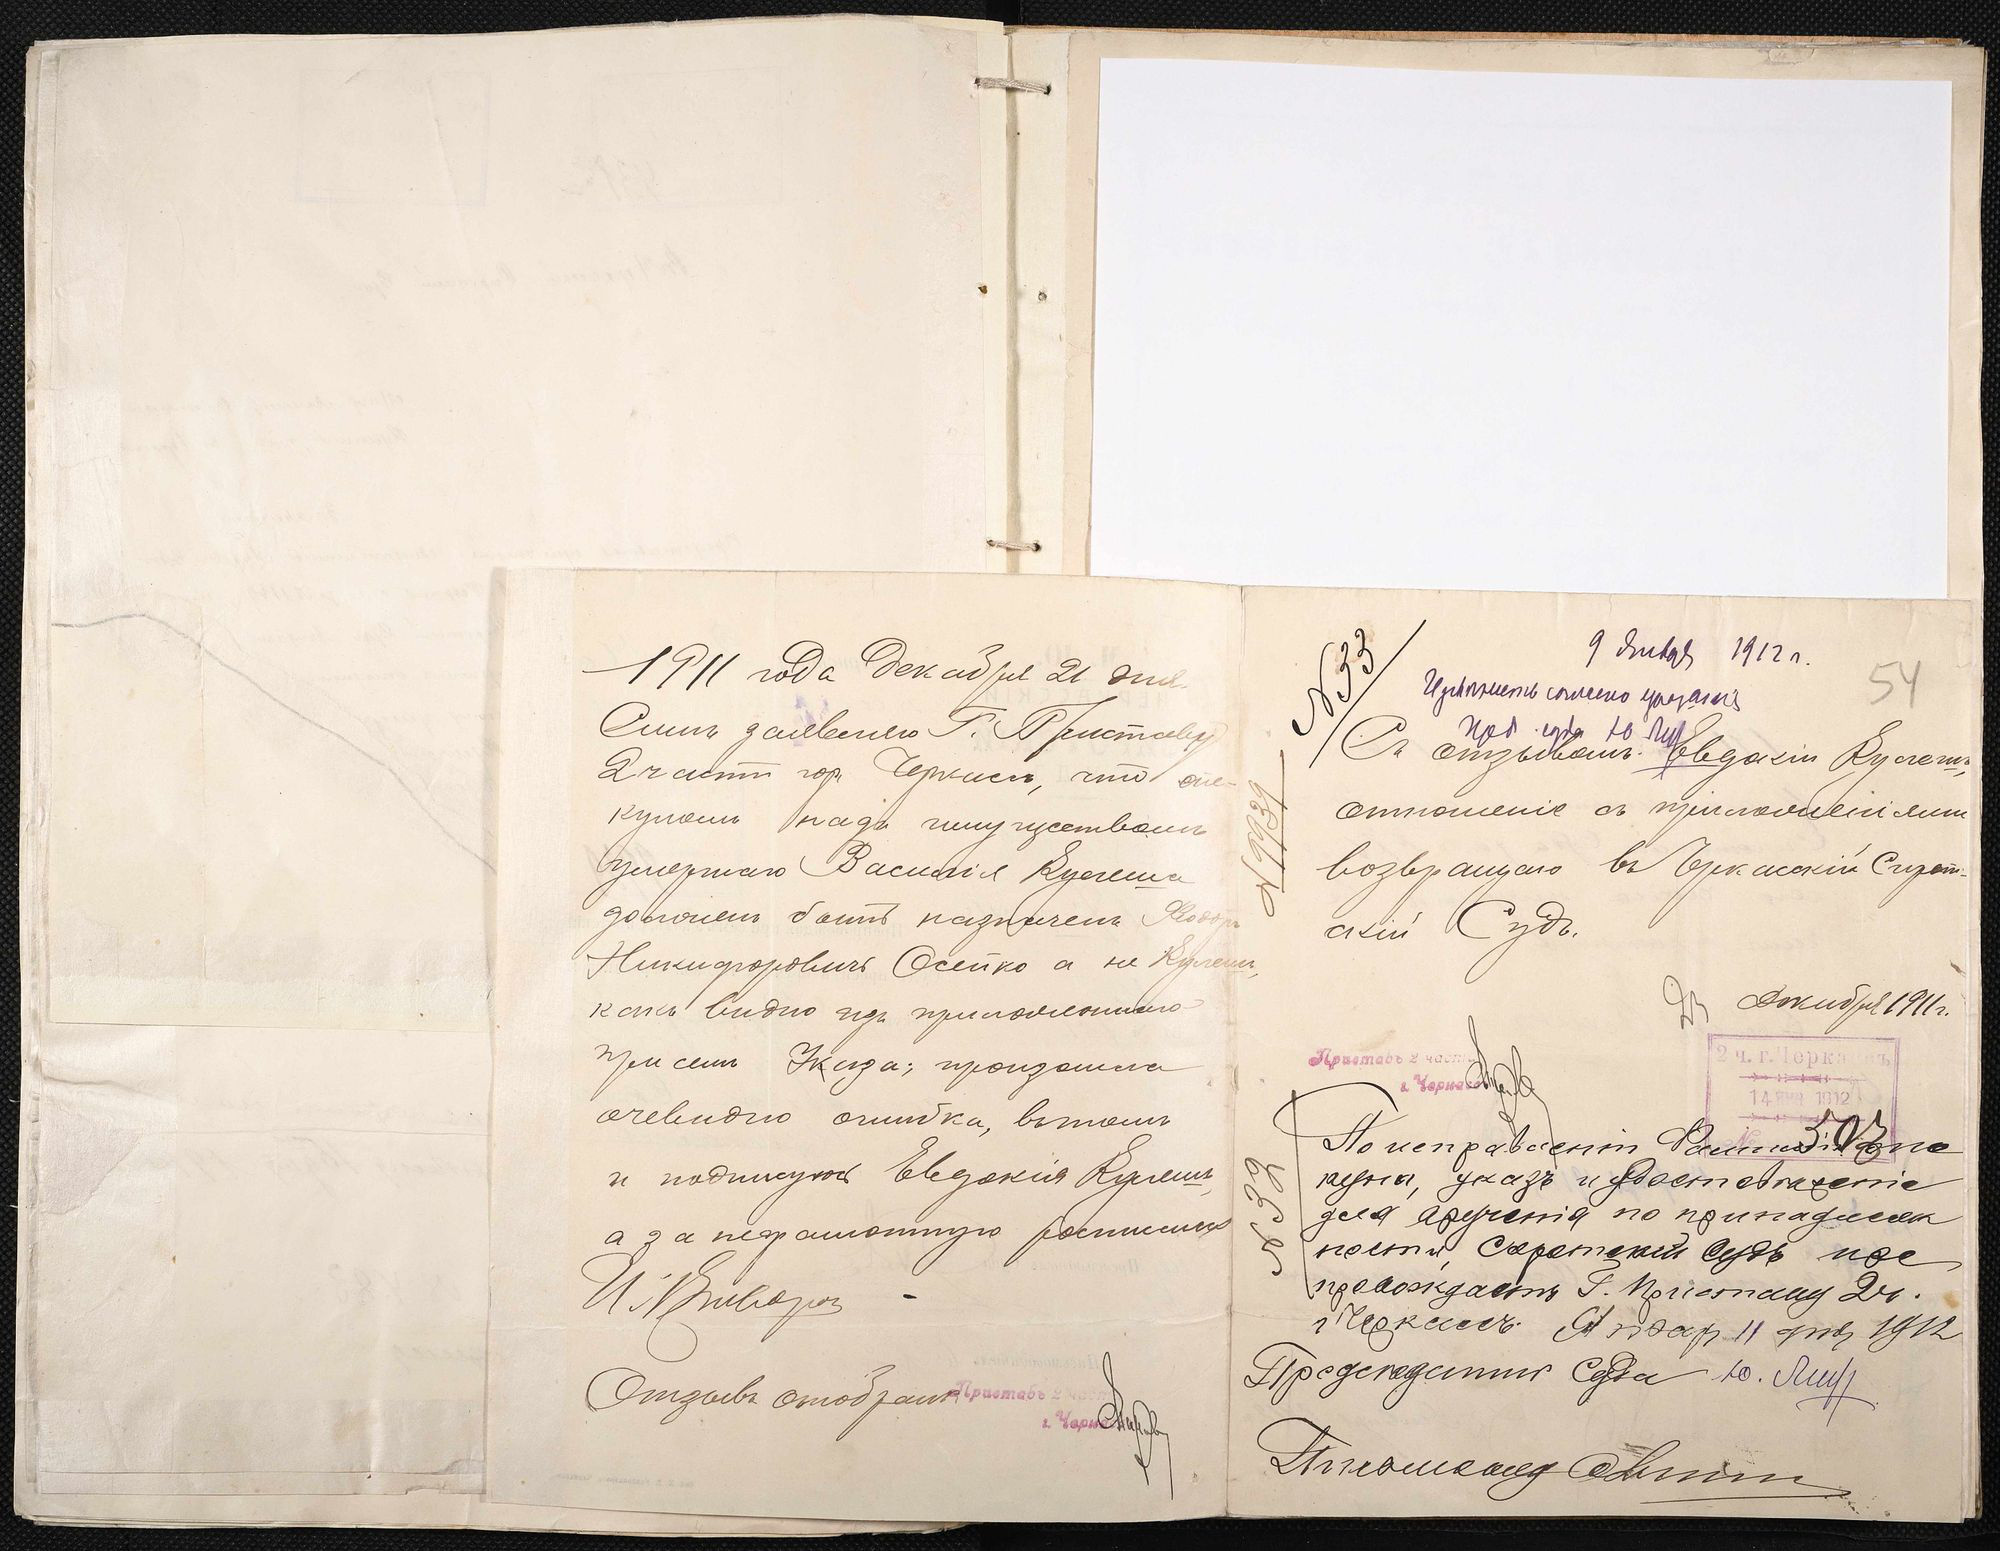 1911 года Декабря 21 дня.
Симъ заявляю Г. Приставу
2 части гор. Черкасъ, что опе-
куномъ надъ имуществомъ
умершаго Василія Кулеша
долженъ быть назначенъ Ѳеодоръ
Никифоровичъ Осейко а не Кулешъ,
какъ видно изъ приложеннаго
при семъ Указа; произошла
очевидно ошибка, въ томъ
и подписуюсь Евдокія Кулешъ,
а за неграмотную росписался
Отзывъ отобралъ
Приставъ 2 части
г. Черкасъ
54
№33
9 Января 1912 г.
Исполнить согласно
Пред. суда Ю.
№ 9939
Съ отзывомъ Евдокіи Кулешъ,
отношеніе съ приложеніями
возвращаю въ Черкасскій Сирот-
скій Судъ.
Декабря 1911 г.
Приставъ 2 части
г. Черкасъ
2 ч. г. Черкассъ
14 ЯНВ 1912
№ 503
№ 32
По исправленіи опе
куна, указъ и удостовѣреніе
для врученія по принадлеж
ности, Сиротскій Судъ пре
провождаетъ Г. Приставу 2 ч.
г. Черкассъ. Января 11 дня 1912
Предсѣдатель Суда Ю.
Письмовод